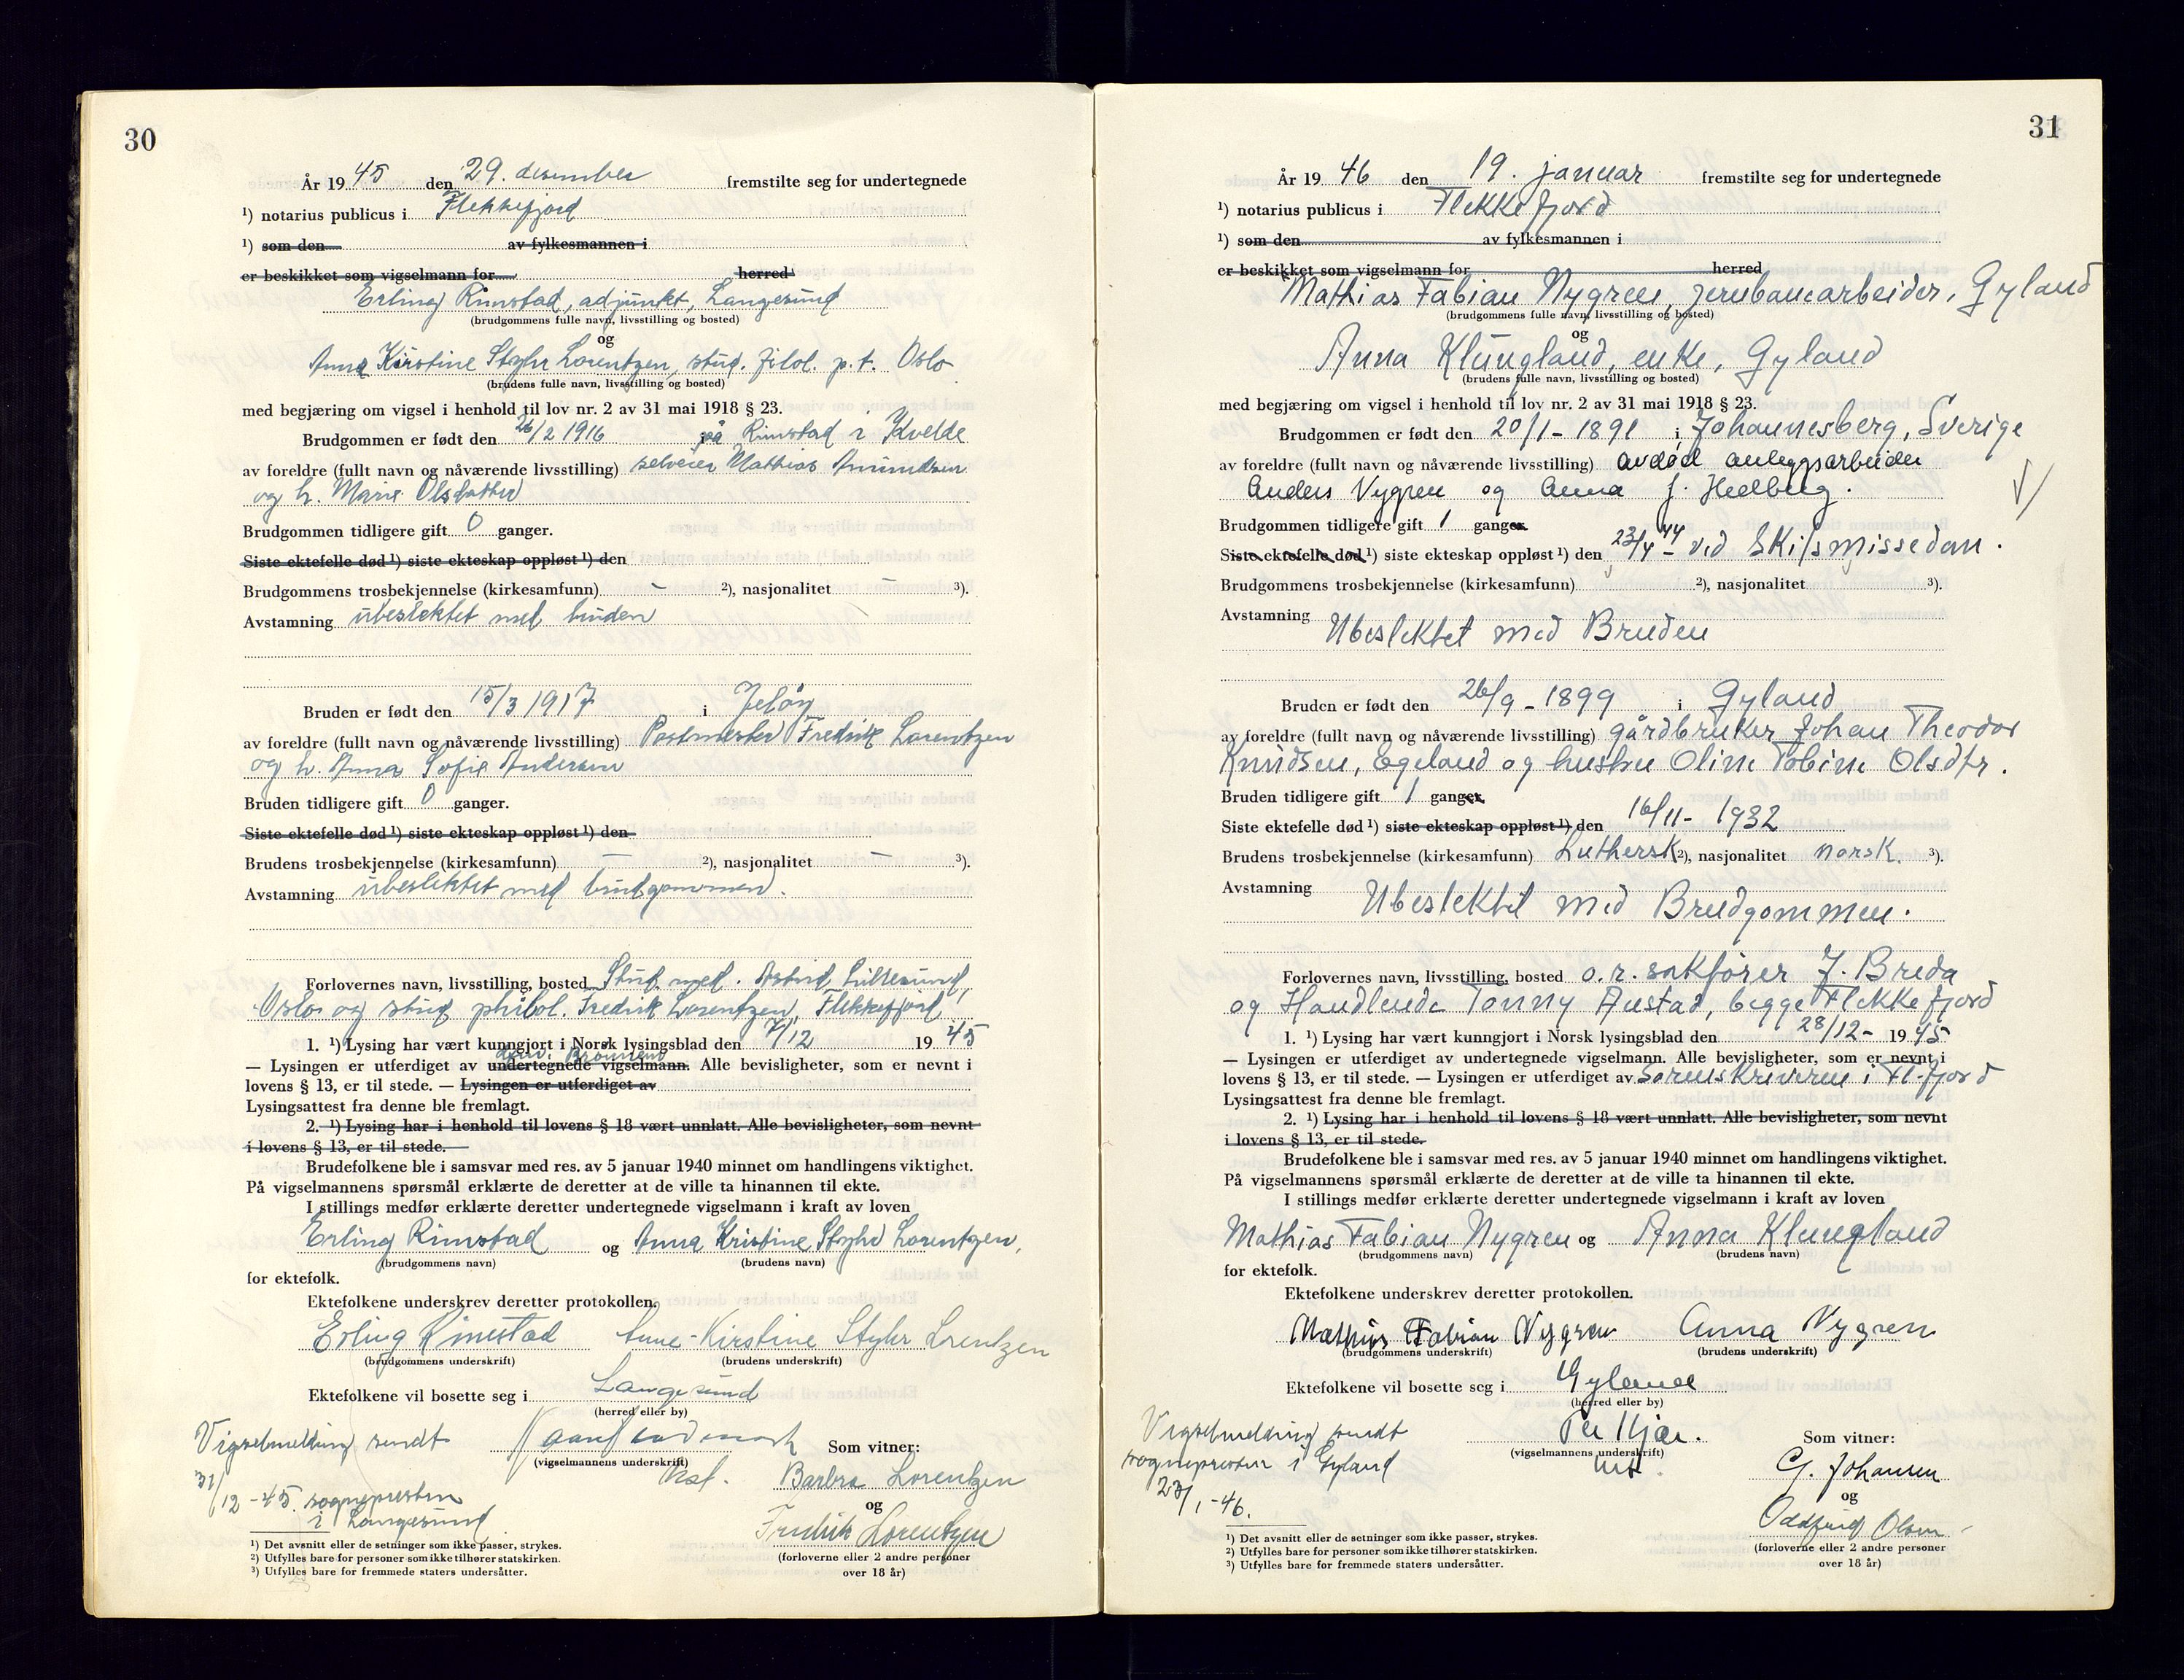 30
År 1945 den 29. desember fremstilte seg for undertegnede
¹) notarius publicus i Flekkefjord
¹) som den av fylkesmannen i
er beskikket som vigselmann for herred
Erling Rimstad, adjunkt, Langesund
(brudgommens fulle navn, livsstilling og bosted)
og
Anna Kirstine Styhr Lorentzen, stud. filol. p.t. Oslo
(brudens fulle navn, livsstilling og bosted)
med begjæring om vigsel i henhold til lov nr. 2 av 31 mai 1918 § 23.
Brudgommen er født den 26/2 1916 på Rimstad i Kvelde
av foreldre (fullt navn og nåværende livsstilling) selveier Mathias Amundsen
og h. Marie Olsdatter
Brudgommen tidligere gift 0 ganger.
Siste ektefelle død ¹) siste ekteskap oppløst ¹) den
Brudgommens trosbekjennelse (kirkesamfunn) – ²), nasjonalitet – ³).
Avstamning ubeslektet med bruden
Bruden er født den 15/3 1917 i Jeløy
av foreldre (fullt navn og nåværende livsstilling) Postmester Fredrik Lorentzen
og h. Anna Sofie Andersen
Bruden tidligere gift 0 ganger.
Siste ektefelle død ¹) siste ekteskap oppløst ¹) den
Brudens trosbekjennelse (kirkesamfunn) – ²), nasjonalitet – ³).
Avstamning ubeslektet med brudgommen.
Forlovernes navn, livsstilling, bosted Stud. med. Astrid Lillesund,
Oslo og stud philol. Fredrik Lorentzen, Flekkefjord
1. ¹) Lysing har vært kunngjort i Norsk lysingsblad den 7/12 1945
— Lysingen er utferdiget av undertegnede vigselmann. Alle bevisligheter, som er nevnt i
lovens § 13, er til stede. — Lysingen er utferdiget av
Lysingsattest fra denne ble fremlagt.
2. ¹) Lysing har i henhold til lovens § 18 vært unnlatt. Alle bevisligheter, som nevnt
i lovens § 13, er til stede.
Brudefolkene ble i samsvar med res. av 5 januar 1940 minnet om handlingens viktighet.
På vigselmannens spørsmål erklærte de deretter at de ville ta hinannen til ekte.
I stillings medfør erklærte deretter undertegnede vigselmann i kraft av loven
Erling Rimstad og Anna Kristine Styhr Lorentzen,
(brudgommens navn) (brudens navn)
for ektefolk.
Ektefolkene underskrev deretter protokollen.
Erling Rimstad Anne-Kirstine Styhr Lorentzen
(brudgommens underskrift) (brudens underskrift)
Ektefolkene vil bosette seg i Langesund
(herred eller by)
Vigselmelding sendt
31/12-45. sognepresten
i Langesund
(vigselmannens underskrift)
Som vitner:
Barbra Lorentzen
og
Fredrik Lorentzen
(forloverne eller 2 andre personer
over 18 år)
¹) Det avsnitt eller de setninger som ikke passer, strykes.
²) Utfylles bare for personer som ikke tilhører statskirken.
³) Utfylles bare for fremmede staters undersåtter.
31
År 1946 den 19. januar fremstilte seg for undertegnede
¹) notarius publicus i Flekkefjord
¹) som den av fylkesmannen i
er beskikket som vigselmann for herred
Mathias Fabian Nygren, jernbanearbeider, Gyland
(brudgommens fulle navn, livsstilling og bosted)
og
Anna Klungland, enke, Gyland
(brudens fulle navn, livsstilling og bosted)
med begjæring om vigsel i henhold til lov nr. 2 av 31 mai 1918 § 23.
Brudgommen er født den 20/1-1891 i Johannesberg, Sverige
av foreldre (fullt navn og nåværende livsstilling) avdød anleggsarbeider
Anders Nygren og Anna J. Hedberg.
Brudgommen tidligere gift 1 ganger
Siste ektefelle død ¹) siste ekteskap oppløst ¹) den 23/4-44 ved Skilsmissedom.
Brudgommens trosbekjennelse (kirkesamfunn) ²), nasjonalitet ³).
Avstamning Ubeslektet med Bruden
Bruden er født den 26/9-1899 i Gyland
av foreldre (fullt navn og nåværende livsstilling) gårdbruker Johan Theodor
Knudsen, Egeland og hustru Oline Tobine Olsdtr.
Bruden tidligere gift 1 ganger
Siste ektefelle død ¹) siste ekteskap oppløst ¹) den 16/11-1932
Brudens trosbekjennelse (kirkesamfunn) Luthersk ²), nasjonalitet norsk. ³).
Avstamning Ubeslektet med Brudgommen.
Forlovernes navn, livsstilling, bosted o.r. sakfører J. Breda
og Handlende Tonny Austad, begge Flekkefjord
1. ¹) Lysing har vært kunngjort i Norsk lysingsblad den 28/12- 1945
— Lysingen er utferdiget av undertegnede vigselmann. Alle bevisligheter, som er nevnt i
lovens § 13, er til stede. — Lysingen er utferdiget av Sorenskriveren i Fl.fjord
Lysingsattest fra denne ble fremlagt.
2. ¹) Lysing har i henhold til lovens § 18 vært unnlatt. Alle bevisligheter, som nevnt
i lovens § 13, er til stede.
Brudefolkene ble i samsvar med res. av 5 januar 1940 minnet om handlingens viktighet.
På vigselmannens spørsmål erklærte de deretter at de ville ta hinannen til ekte.
I stillings medfør erklærte deretter undertegnede vigselmann i kraft av loven
Mathias Fabian Nygren og Anna Klungland
(brudgommens navn) (brudens navn)
for ektefolk.
Ektefolkene underskrev deretter protokollen.
Mathias Fabian Nygren Anna Nygren
(brudgommens underskrift) (brudens underskrift)
Ektefolkene vil bosette seg i Gyland
(herred eller by)
Vigselmelding sendt
sognepresten i Gyland
23/1-46.
(vigselmannens underskrift)
Som vitner:
G. Johansen
og
Oddfrid Olsen
(forloverne eller 2 andre personer
over 18 år)
¹) Det avsnitt eller de setninger som ikke passer, strykes.
²) Utfylles bare for personer som ikke tilhører statskirken.
³) Utfylles bare for fremmede staters undersåtter.